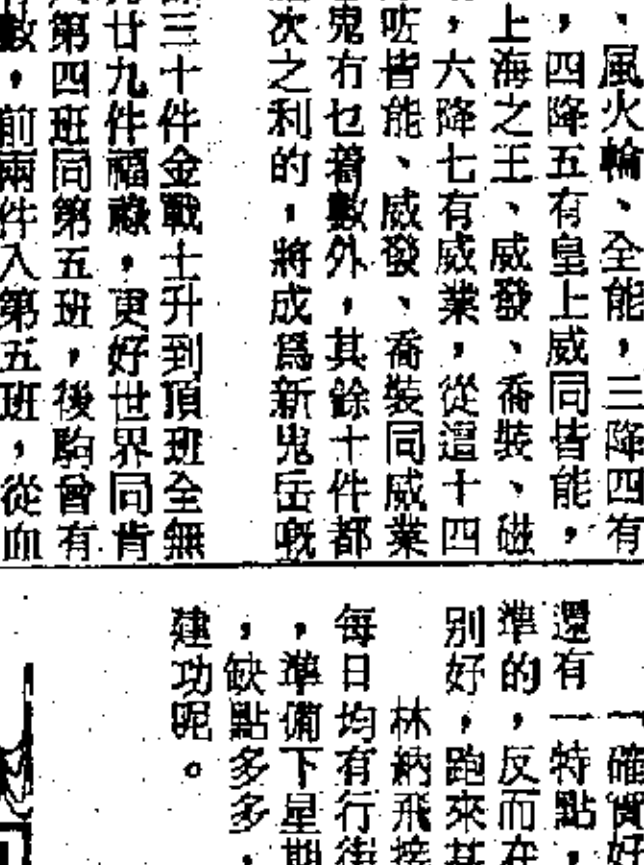 、風火輪、全能，三降四有
，四降五有皇上威同皆能，
上海之王、威發、喬裝、磁
，六降七有威業，從這十四
咗皆能、威發、喬裝同威業
鬼冇乜着數外，其餘十件都
次之利的，將成爲新鬼岳嘅
三十件金戰士升到頂班全無
廿九件福祿，更好世界同肯
第四班同第五班，後駒曾有
數，前兩件入第五班，從血
一確實好
還有一特點，
準的，反而在
別好，跑來其
林納飛接
每日均有行街
，準備下星期
，缺點多多，
建功呢。